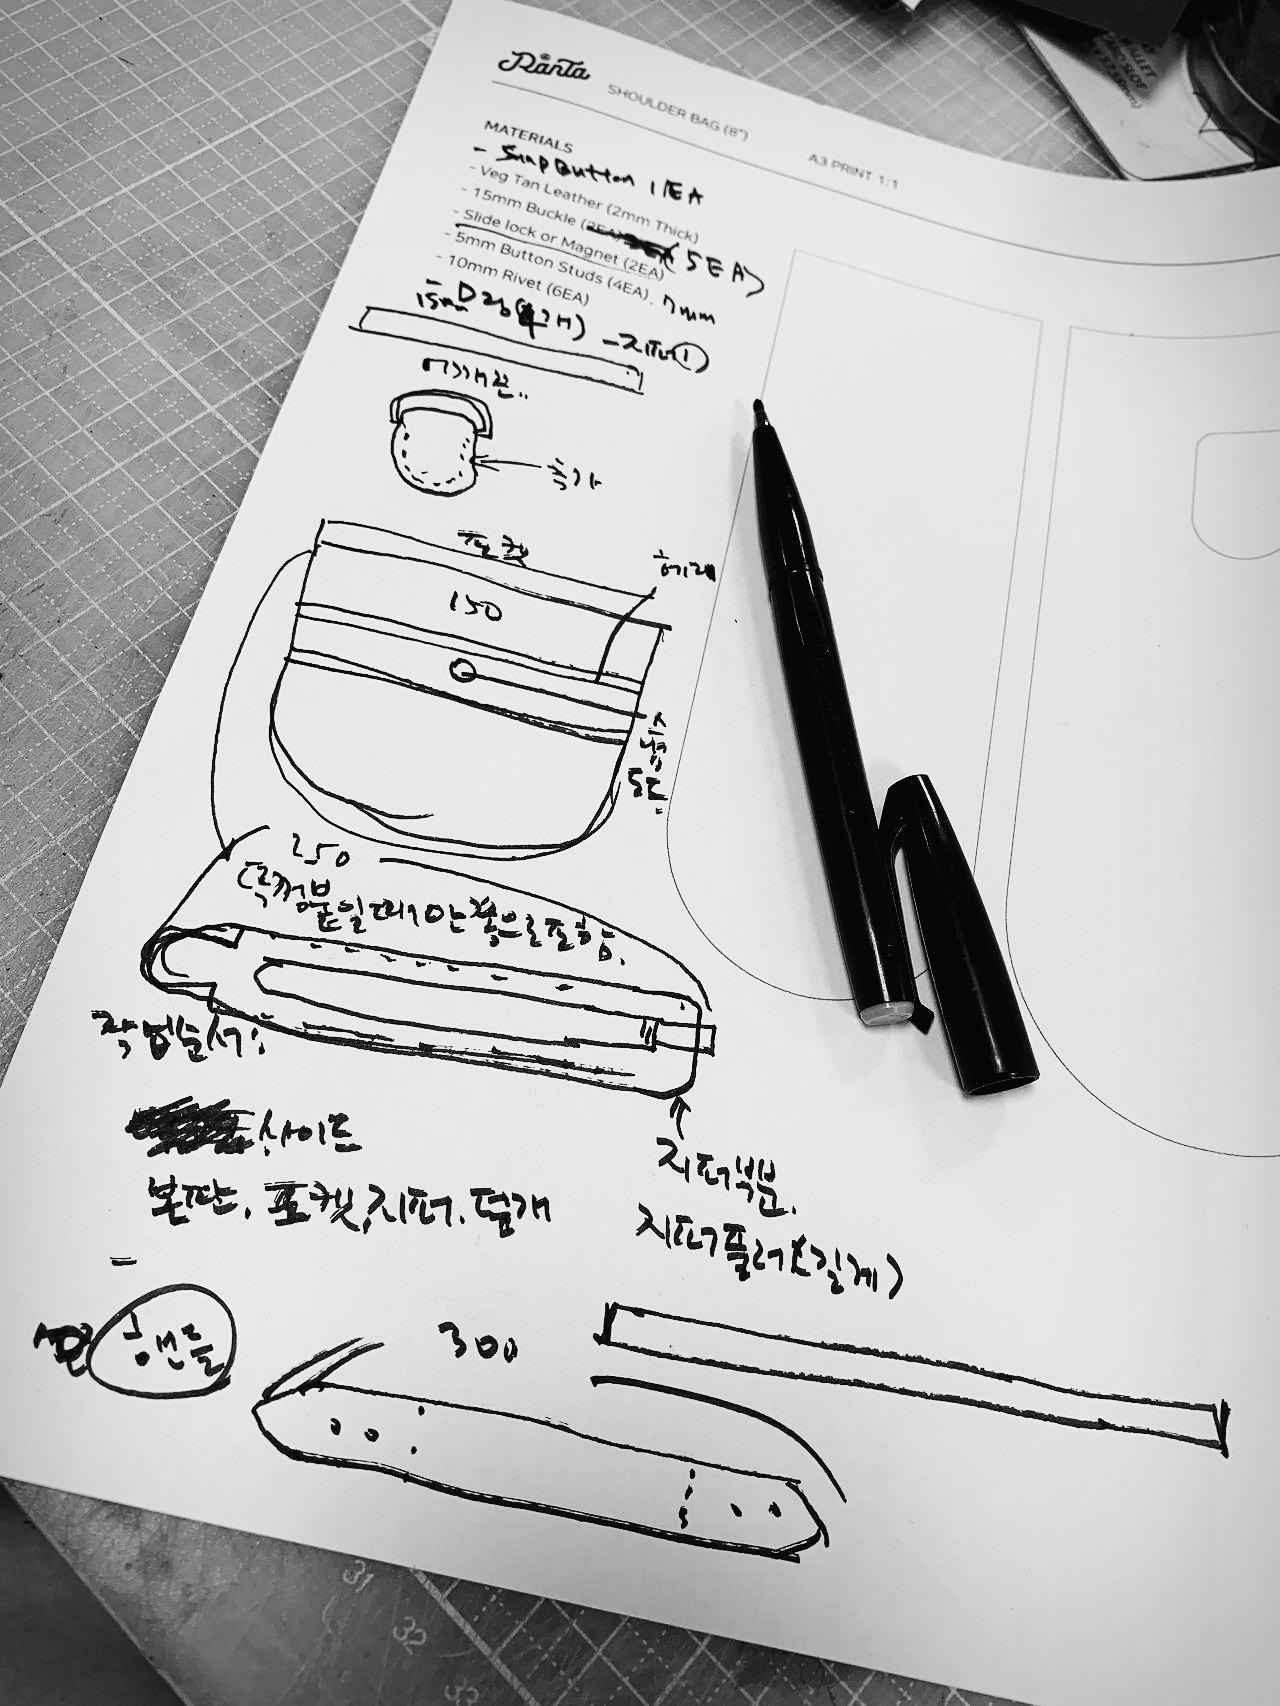 Ranta
SHOULDER BAG (8")
A3 PRINT 1:1
MATERIALS
- Snap Button 1EA
- Veg Tan Leather (2mm Thick)
- 15mm Buckle (5EA)
- Slide lock or Magnet (2EA)
- 5mm Button Studs (4EA). 7mm
- 10mm Rivet (6EA)
- 15mm D링(4개) - 지퍼①
어깨끈..
추가
포켓
150
스냅
5도
250
안쪽으로
작업순서:
사이드
본판, 포켓, 지퍼, 덮개
지퍼부분.
지퍼풀러(길게)
핸들
300
31
32
33